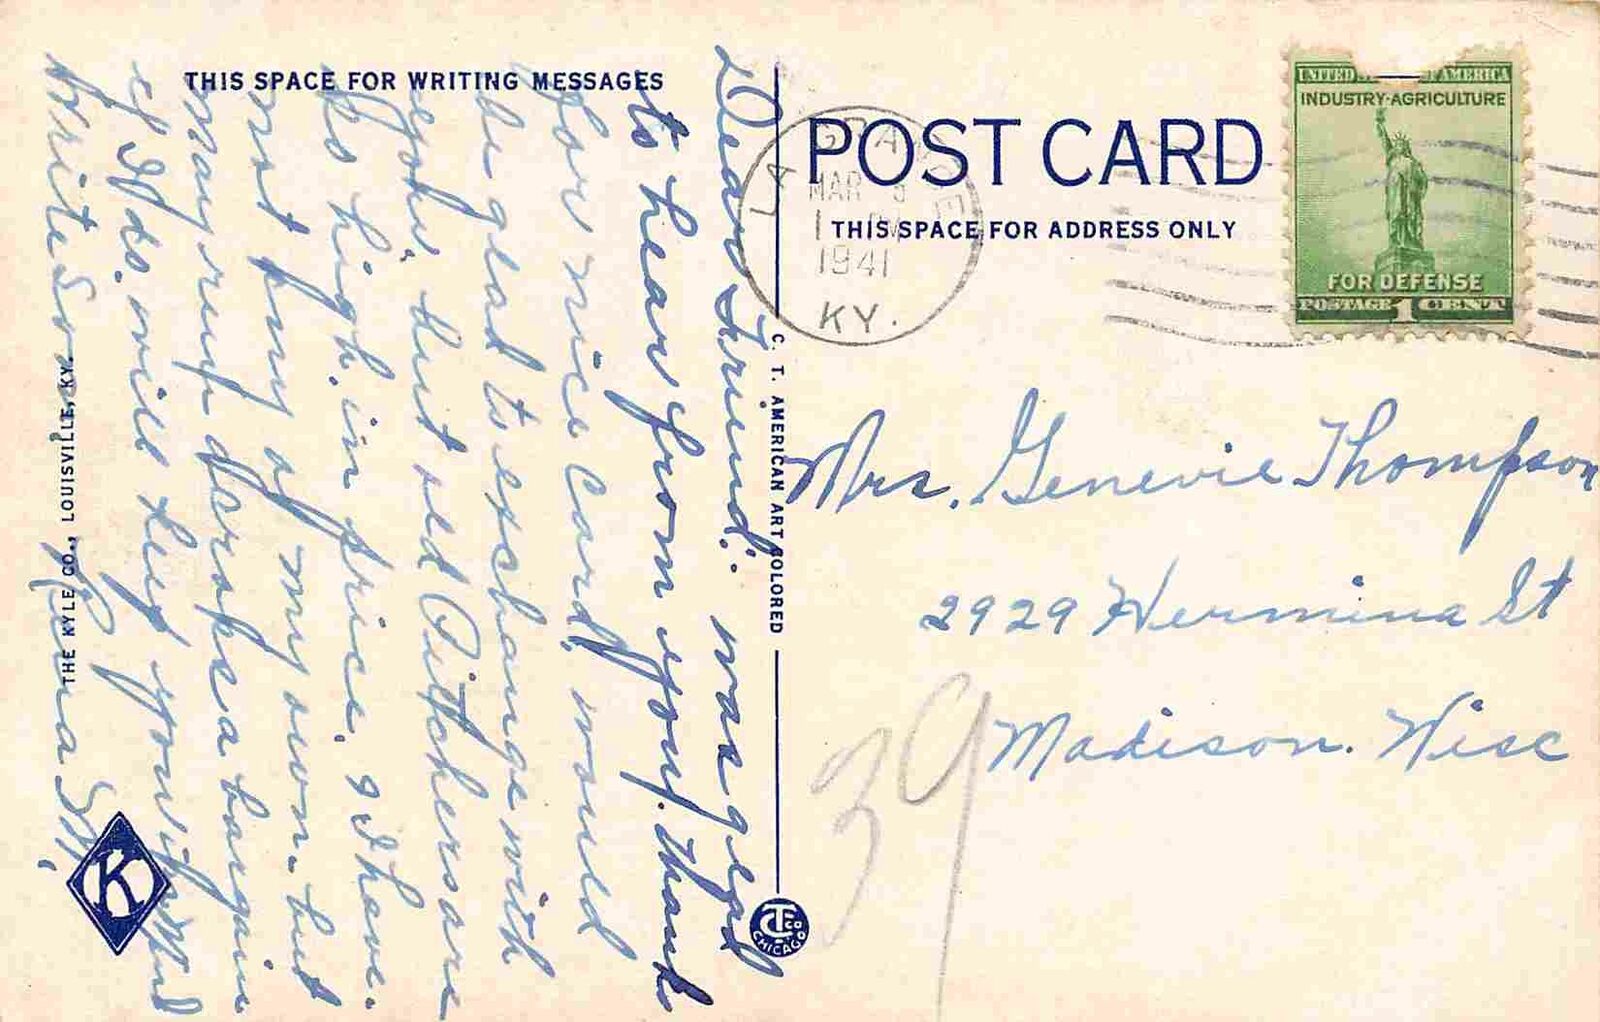 THIS SPACE FOR WRITING MESSAGES
Dear Friend: was glad
to hear from you. Thanks
for nice card, would
be glad to exchange with
you. but old Pitchers are
so high in price. & I have
not any of my own. but
may run across a bargain
if I do. will buy you
Write Soon
THE KYLE CO., LOUISVILLE, KY.
K
C. T. AMERICAN ART COLORED
CT CO CHICAGO
POST CARD
THIS SPACE FOR ADDRESS ONLY
LA GRANGE
MAR
1 PM
1941
KY.
UNITED AMERICA
INDUSTRY-AGRICULTURE
FOR DEFENSE
POSTAGE 1 CENT
Mrs. Genevie Thompson
2929 Hermina St
Madison. Wisc
39